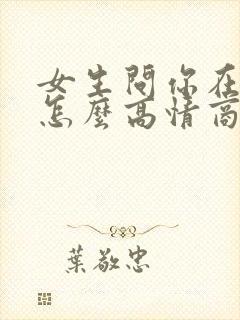 女生問你在
怎麼高情商
葉敬忠